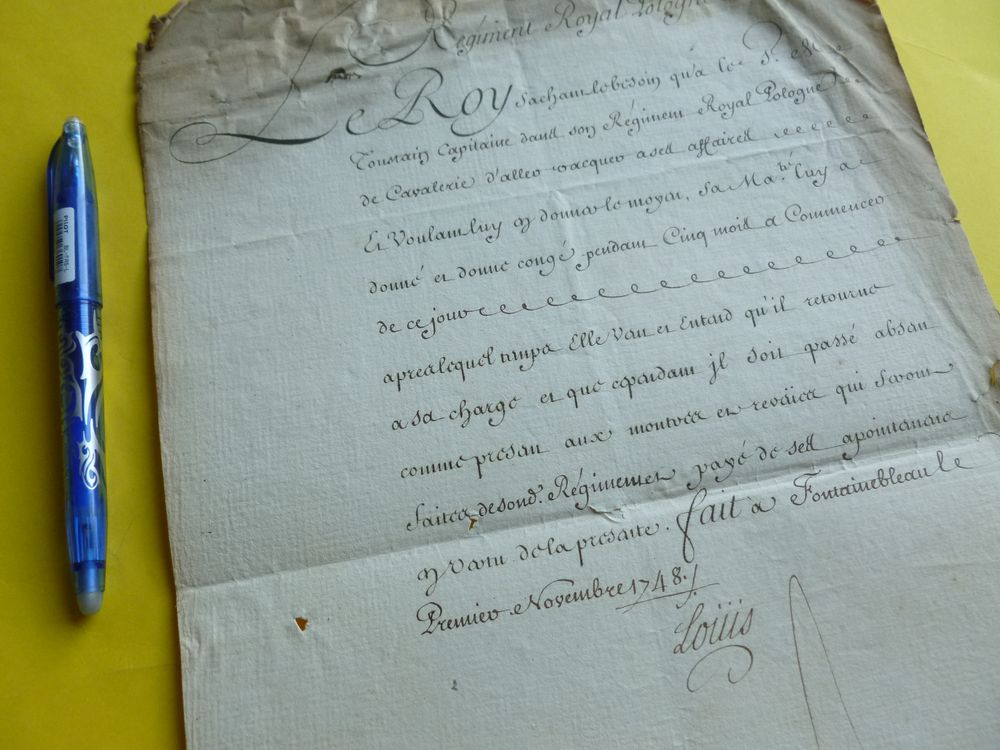 Régiment Royal Pologne
Le Roy sachant le besoin qu'a le S. de
Toustain Capitaine dans son Régiment Royal Pologne
de Cavalerie d'aller vacquer a ses affaires
Et Voulant luy en donner le moyen, Sa Ma.té luy a
donné et donne congé pendant Cinq mois a Commencer
de ce jour
apres lequel temps Elle Veut et Entend qu'il retourne
a sa charge et que cependant jl soit passé absent
comme present aux montres et reveües qui Seront
faites de son d. Régiment et payé de ses apointemens
en Vertu de la presente. fait a Fontainebleau le
Premier Novembre 1748./.
Loüis
PILOT